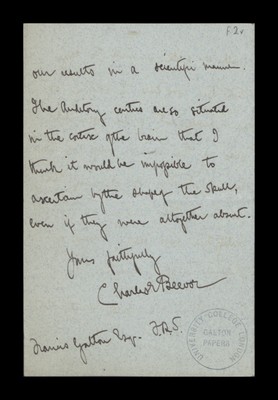 F.2v
our results in a scientific manner.
The Auditory centres are so situated
in the cortex of the brain that I
think it would be impossible to
ascertain by the shape of the skull,
even if they were altogether absent.
Yours faithfully
Charles E Beevor
Francis Galton Esq. F.R.S.
UNIVERSITY COLLEGE LONDON
GALTON
PAPERS